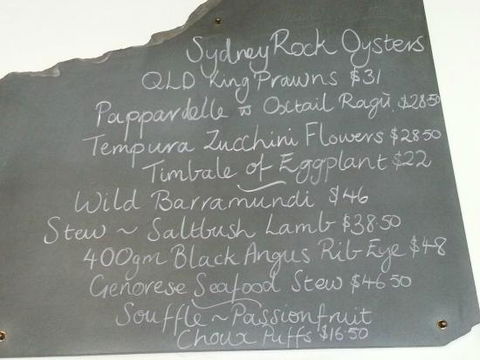 Sydney Rock Oysters
QLD King Prawns $31
Pappardelle w Oxtail Ragù $28.50
Tempura Zucchini Flowers $28.50
Timbale of Eggplant $22
Wild Barramundi $46
Stew ~ Saltbush Lamb $38.50
400gm Black Angus Rib Eye $48
Genovese Seafood Stew $46.50
Souffle ~ Passionfruit
Choux Puffs $16.50